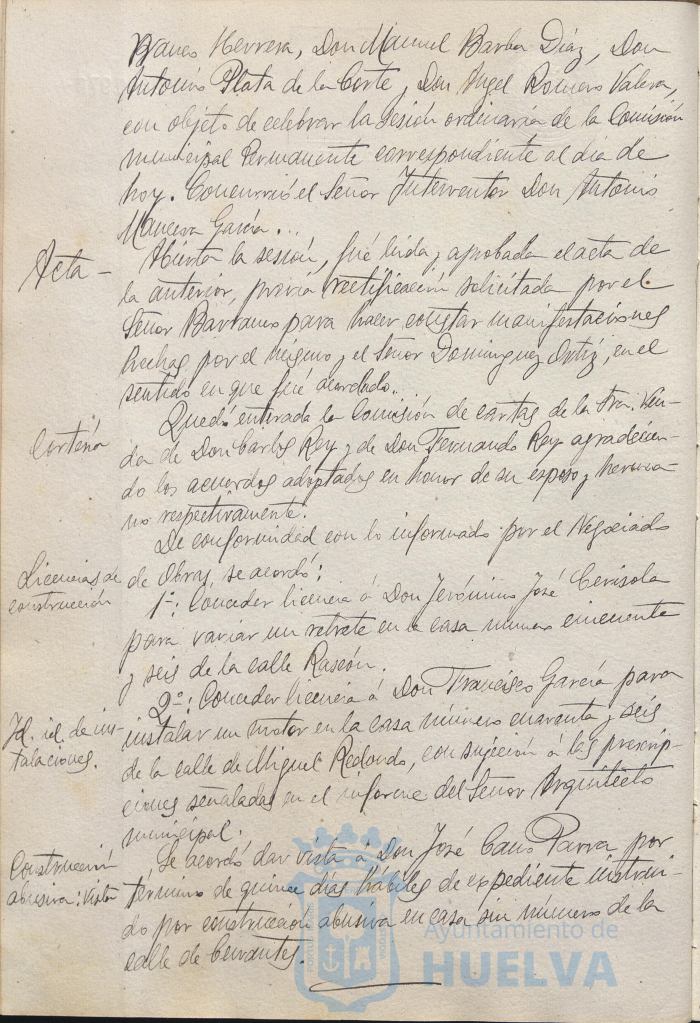 Herrera, Don Manuel Barba Díaz, Don
Antonio Plata de la Corte y Don Angel Romero Valera,
con objeto de celebrar la sesión ordinaria de la Comisión
municipal Permanente correspondiente al día de
hoy. Concurrió el Señor Interventor Don Antonio
García...
Acta-
Abierta la sesión, fué leída y aprobada el acta de
la anterior, previa rectificación solicitada por el
Señor Barranco para hacer constar manifestaciones
hechas por el mismo y el Señor Dominguez Ortiz, en el
sentido en que fué acordado.
Cortesía
Quedó enterada la Comisión de cartas de la Sra. Viu-
da de Don Carlos Rey y de Don Fernando Rey agradecien-
do los acuerdos adoptados en honor de su esposo y herma-
no respectivamente.
De conformidad con lo informado por el Negociado
Licencias de
construcción
de Obras, se acordó:
1º: Conceder licencia á Don Jerónimo José Cerisola
para variar un retrete en la casa número cincuenta
y seis de la calle Rascón.
2º: Conceder licencia á Don Francisco García para
Id. id. de ins-
talaciones.
instalar un motor en la casa número cuarenta y seis
de la calle de Miguel Redondo, con sujeción á las prescrip-
ciones señaladas en el informe del Señor Arquitecto
municipal.
Construcción
abusiva: Vista
Se acordó dar vista á Don José Cano Parra por
término de quince días hábiles de expediente instrui-
do por construcción abusiva en casa sin número de la
calle de Cervantes.
Ayuntamiento de
HUELVA